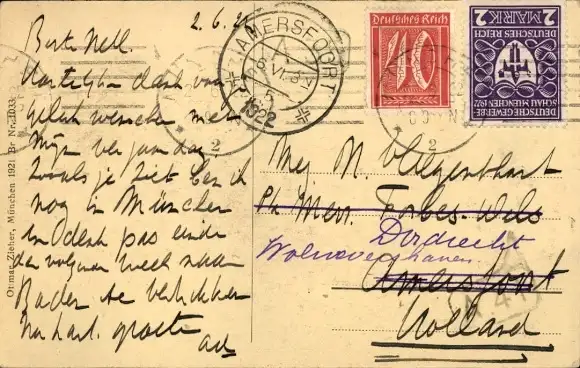 2.6.22
Beste Nell.
Hartelijk dank voor
geluk wenschen met
Mijn verjaardag,
zooals je ziet ben ik
nog in München
en denk pas einde
der volgende week naar
Baden te vertrekken
hartel. groete
Ottmar Zieher, München 1921 Br Nr.
AMERSFOORT
6 VI
1922
Deutsches Reich
40
2 MARK 2
DEUTSCHES REICH
DEUTSCHE GEWERBE
SCHAU MÜNCHEN 1922
2
2
Mej N. Vliegenthart
Mevr. Forbes-Wels
Dordrecht
Wolwevershaven
Amersfoort
Holland